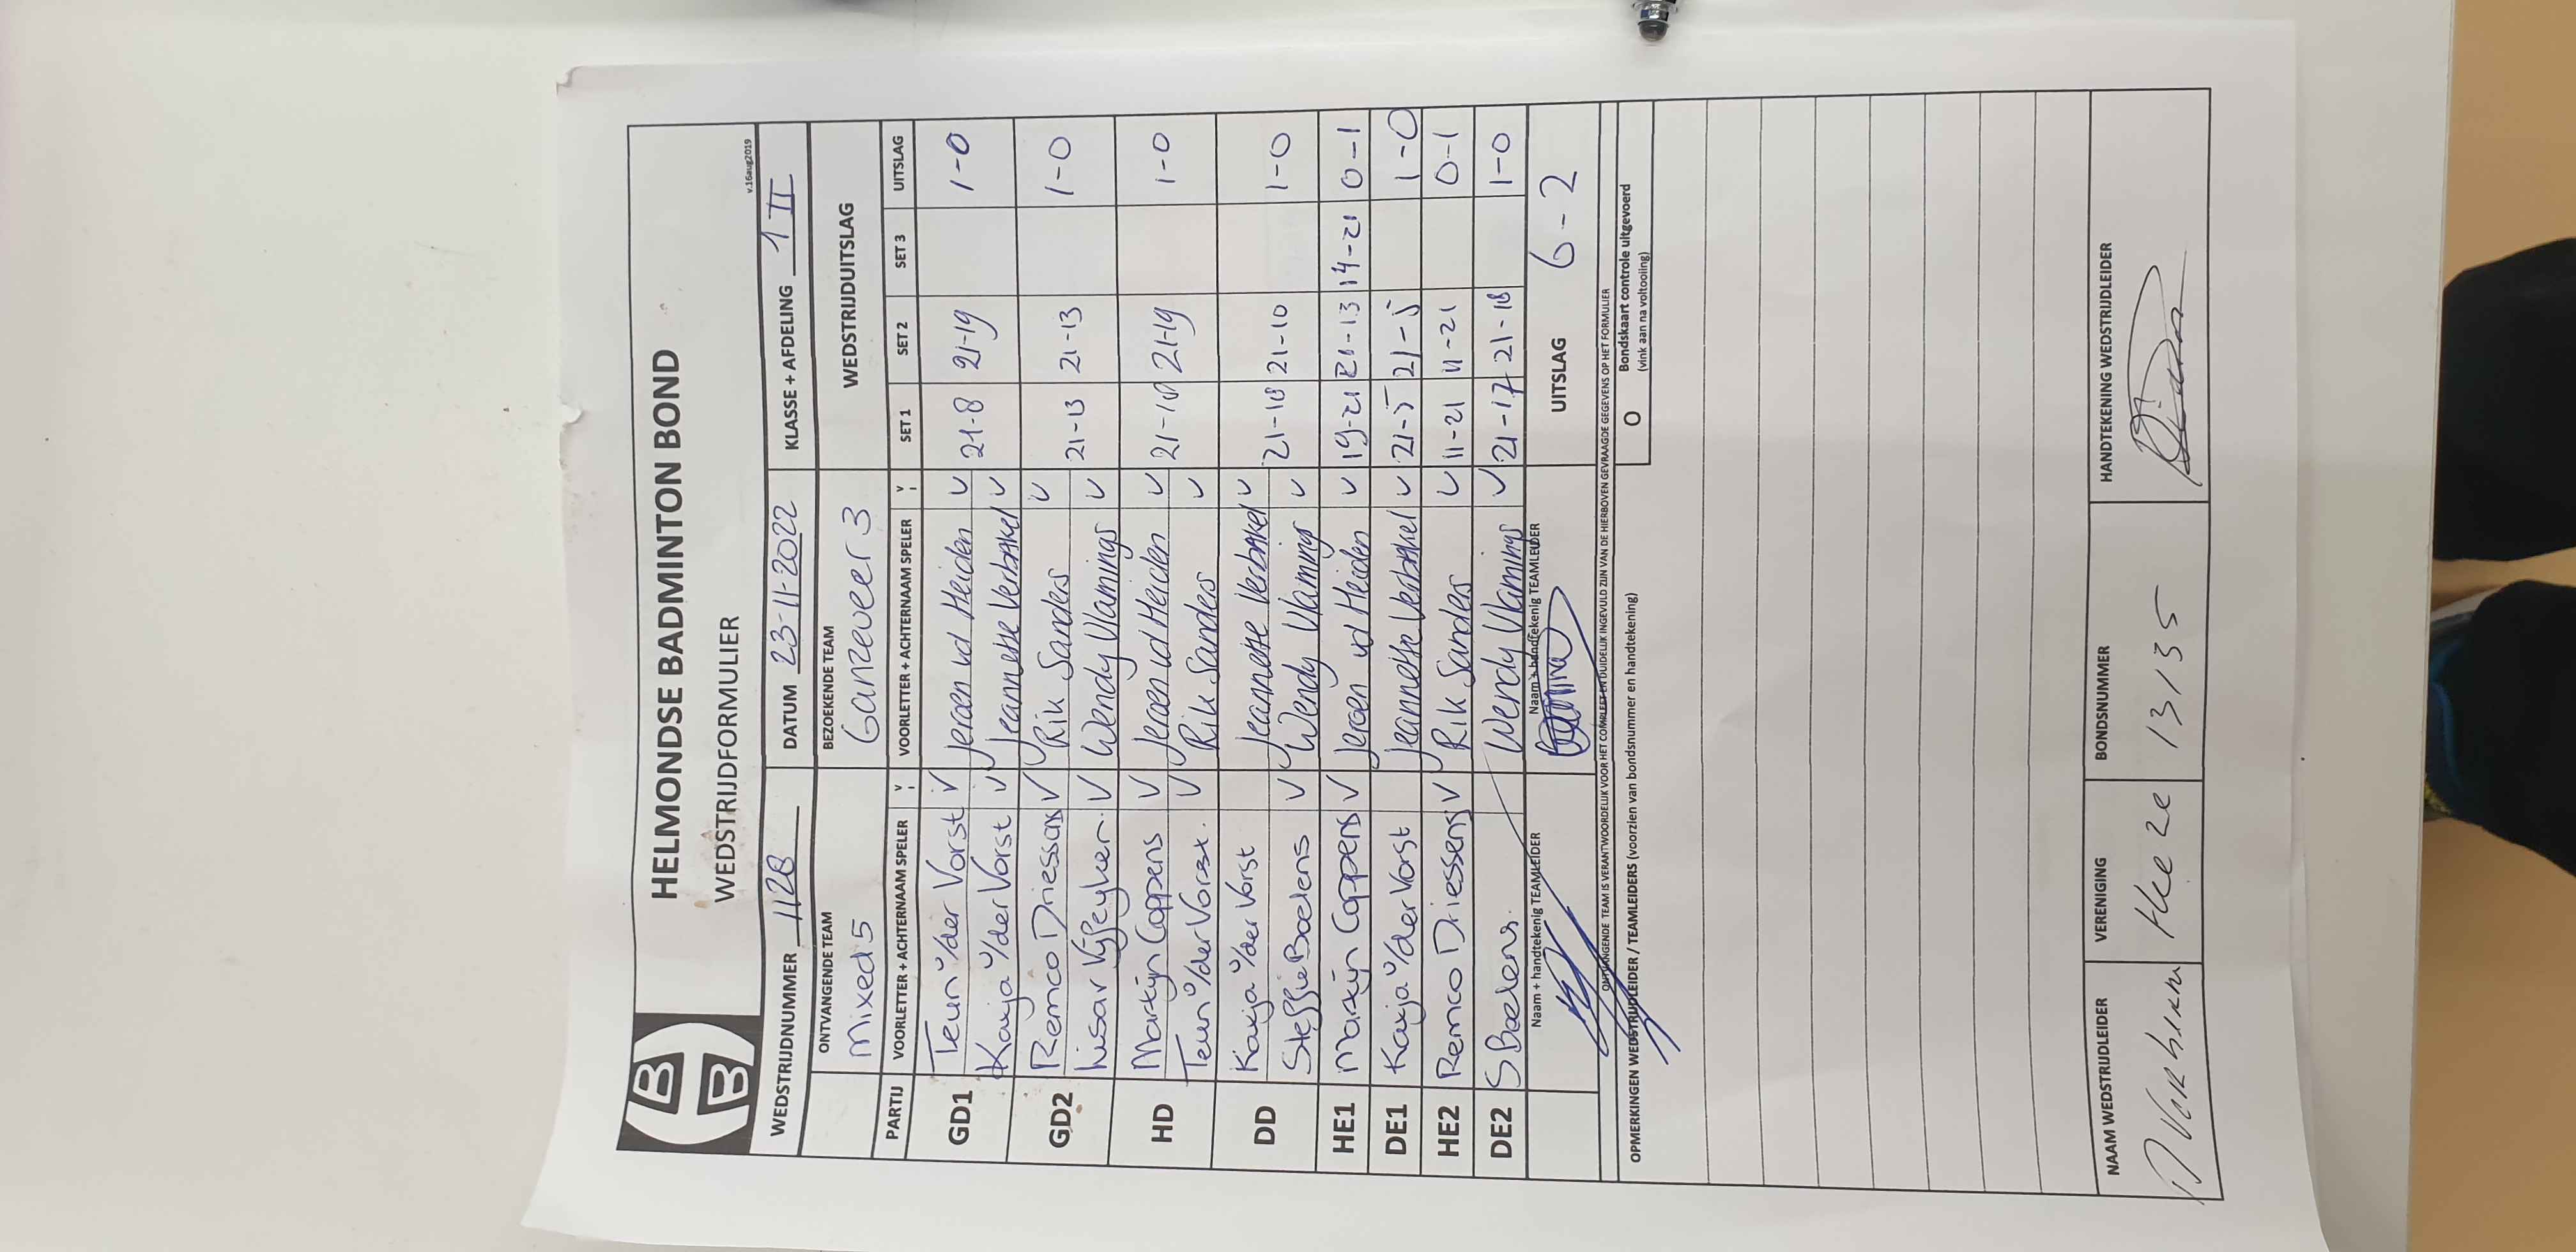 HELMONDSE BADMINTON BOND
WEDSTRIJDFORMULIER
v.16aug2019
WEDSTRIJDNUMMER 1128 DATUM 23-11-2022 KLASSE + AFDELING 1 II
ONTVANGENDE TEAM BEZOEKENDE TEAM WEDSTRIJDUITSLAG
Mixed 5 Ganzeveer 3
PARTIJ VOORLETTER + ACHTERNAAM SPELER V VOORLETTER + ACHTERNAAM SPELER V SET 1 SET 2 SET 3 UITSLAG
GD1 Teun v/der Vorst V Jeroen vd Heiden V 21-8 21-19 1-0
Katja v/der Vorst V Jeannette Verbakel V
GD2 Remco Driessens V Rik Sanders V 21-13 21-13 1-0
V Wendy Vlamings V
HD Martijn Coppens V Jeroen vd Heiden V 21-18 21-19 1-0
Teun v/der Vorst. V Rik Sanders V
DD Katja v/der Vorst Jeannette Verbakel V 21-18 21-10 1-0
Steffie Boelens V Wendy Vlamings V
HE1 Martijn Coppens V Jeroen vd Heiden V 19-21 21-13 14-21 0-1
DE1 Katja v/der Vorst Jeannette Verbakel V 21-5 21-5 1-0
HE2 Remco Driessens V Rik Sanders V 11-21 11-21 0-1
DE2 S Boelens. Wendy Vlamings V 21-17 21-18 1-0
Naam + handtekenig TEAMLEIDER Naam + handtekenig TEAMLEIDER UITSLAG 6-2
ONTVANGENDE TEAM IS VERANTWOORDELIJK VOOR HET COMPLEET EN DUIDELIJK INGEVULD ZIJN VAN DE HIERBOVEN GEVRAAGDE GEGEVENS OP HET FORMULIER
OPMERKINGEN WEDSTRIJDLEIDER / TEAMLEIDERS (voorzien van bondsnummer en handtekening)
O Bondskaart controle uitgevoerd
(vink aan na voltooiing)
NAAM WEDSTRIJDLEIDER VERENIGING BONDSNUMMER HANDTEKENING WEDSTRIJDLEIDER
13135